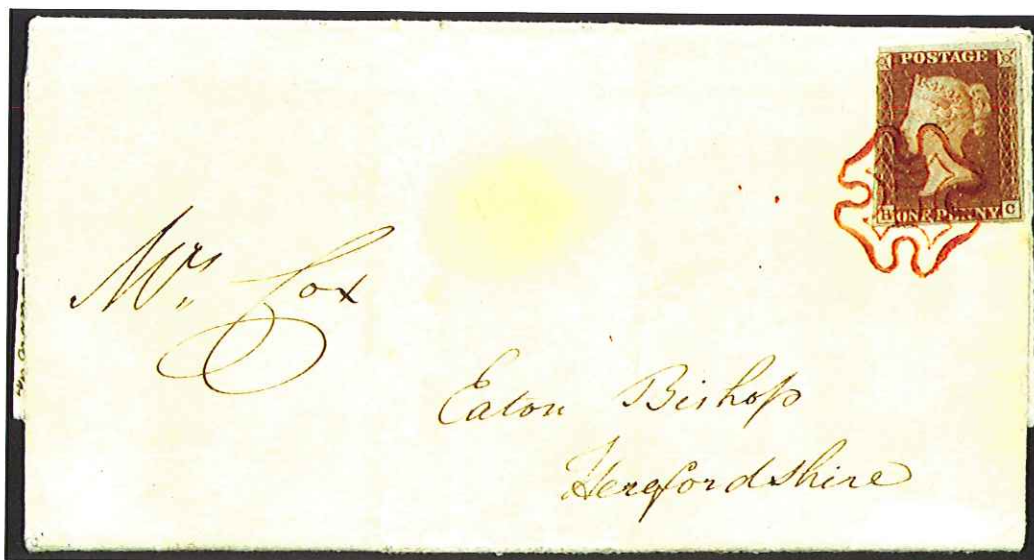 POSTAGE
H ONE PENNY C
Mrs Cox
Eaton Bishop
Herefordshire